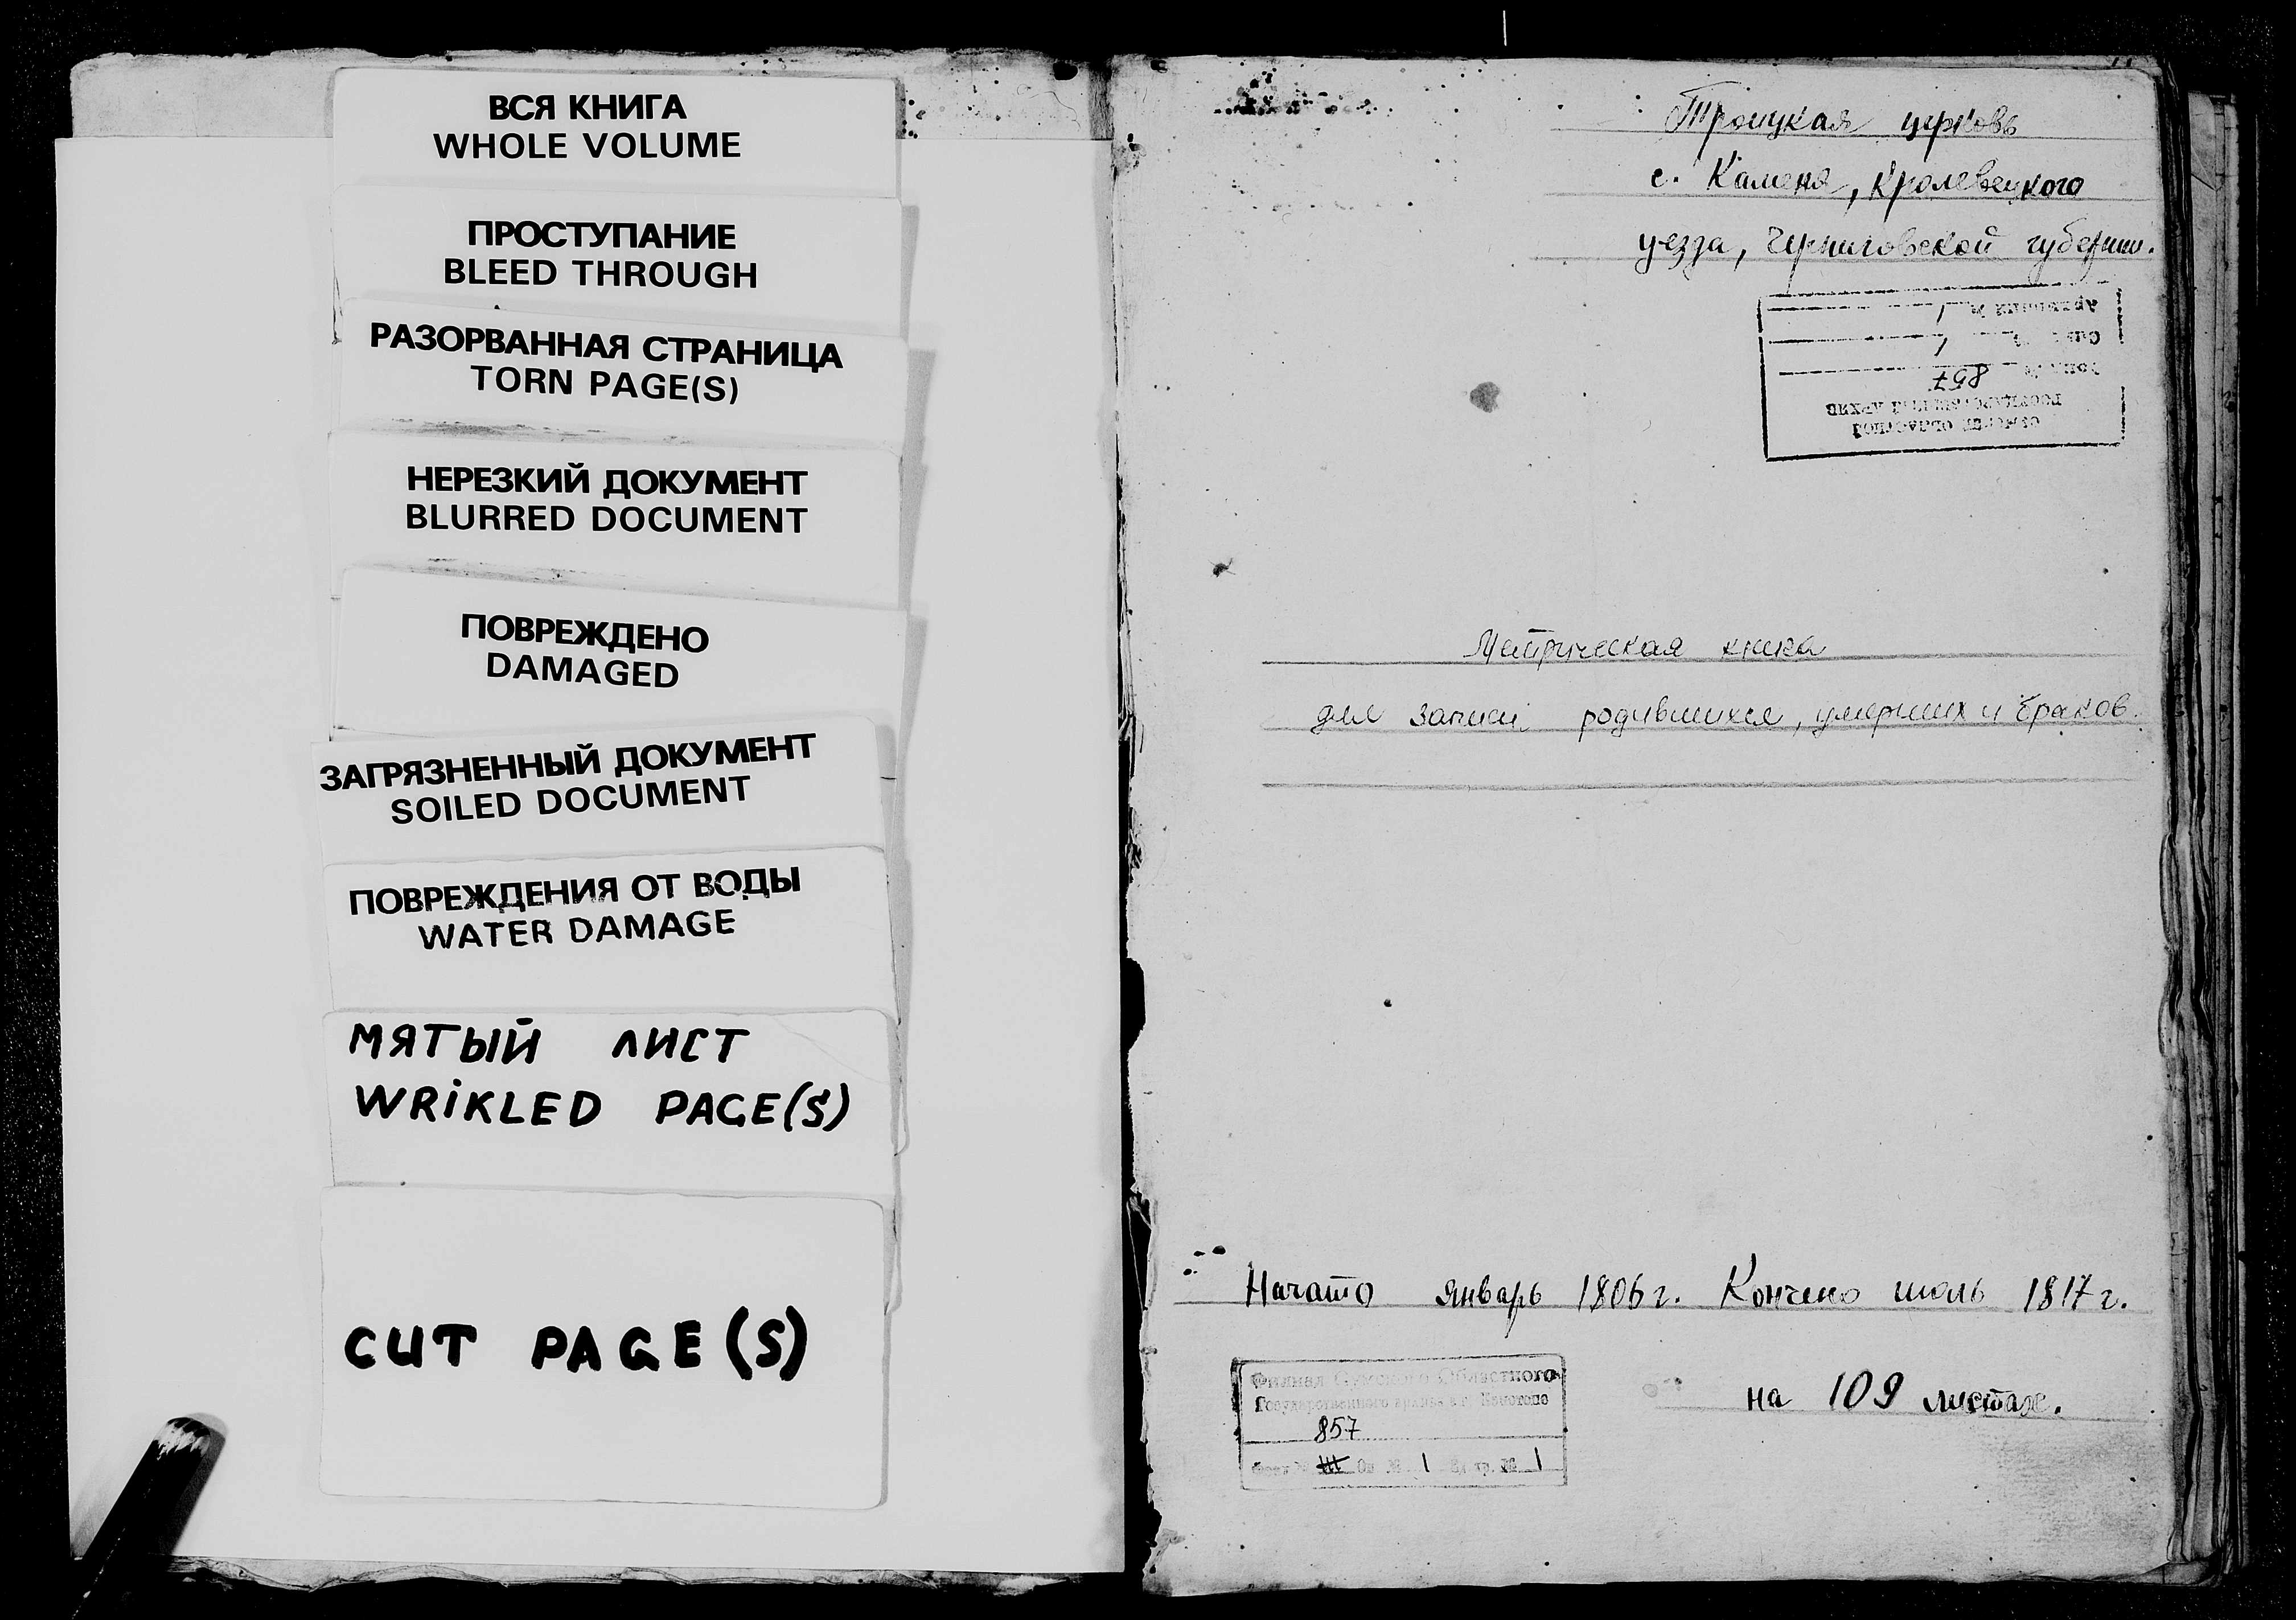 ВСЯ КНИГА
WHOLE VOLUME
ПРОСТУПАНИЕ
BLEED THROUGH
РАЗОРВАННАЯ СТРАНИЦА
TORN PAGE(S)
НЕРЕЗКИЙ ДОКУМЕНТ
BLURRED DOCUMENT
ПОВРЕЖДЕНО
DAMAGED
ЗАГРЯЗНЕННЫЙ ДОКУМЕНТ
SOILED DOCUMENT
ПОВРЕЖДЕНИЯ ОТ ВОДЫ
WATER DAMAGE
МЯТЫЙ ЛИСТ
WRiKLED PAGE(S)
CUT PAGE(S)
Троицкая церковь
с. Каменя, Кролевецкого
уезда, Черниговской губернии.
Архивный № 1
1
857
ГОСУДАРСТВЕННЫЙ АРХИВ
СУМСКИЙ ОБЛАСТНОЙ
Метрическая книга
для записи родившихся, умерших и браков.
Начато январь 1806 г. Кончено июль 1817 г.
на 109 листах.
Филиал Сумского Областного
Государственного архива в г. Конотопе
857
Фонд № Оп № 1 Ед. хр. № 1